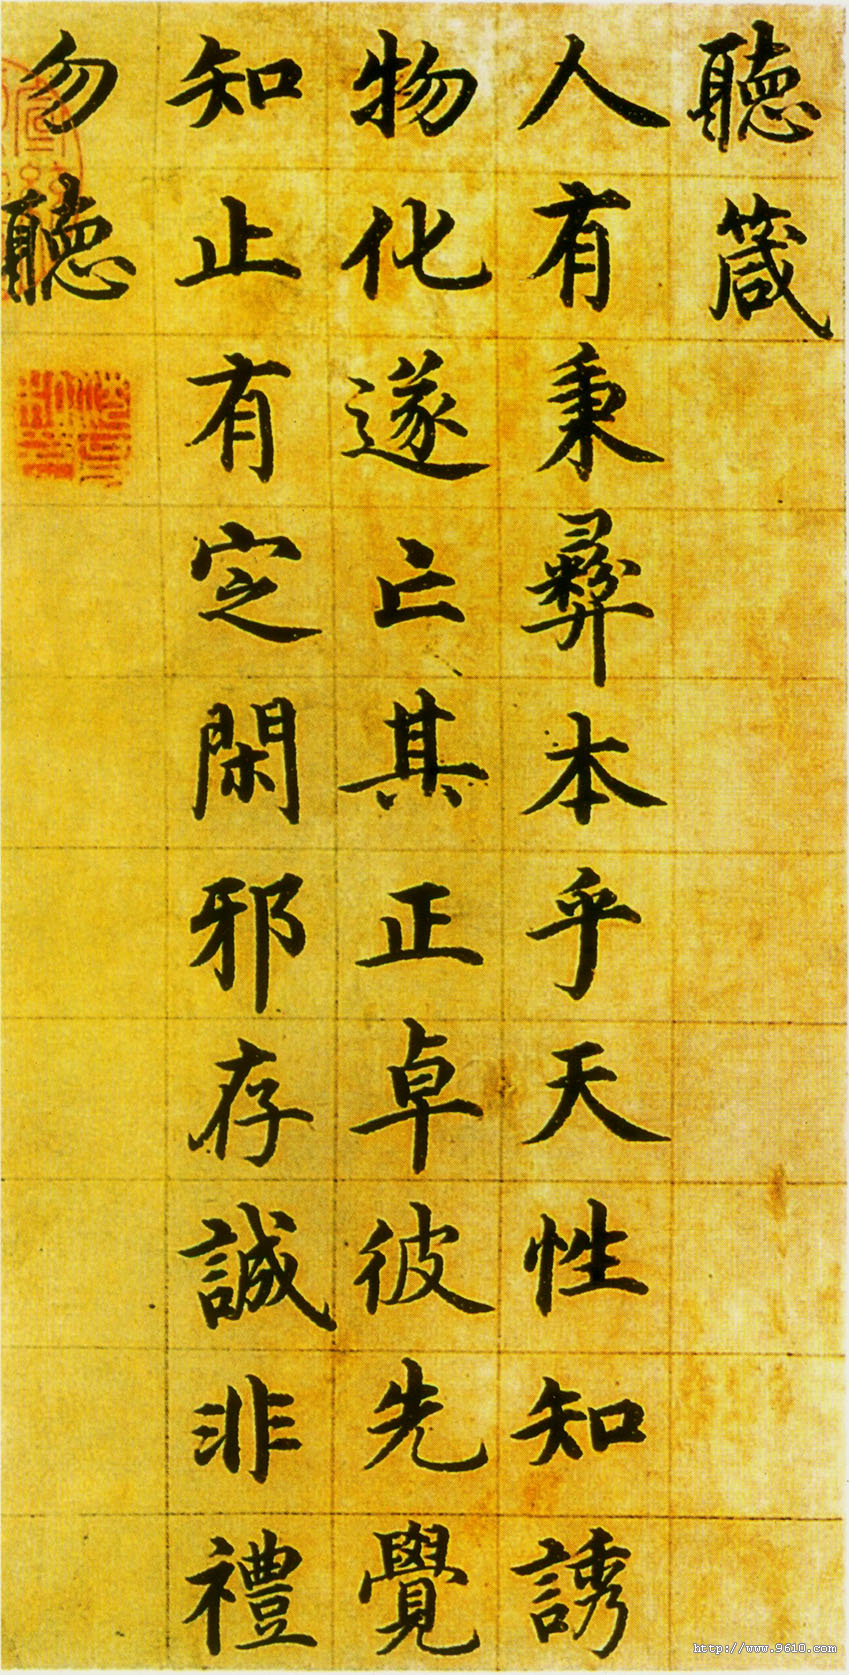 聽箴
人有秉彝本乎天性知誘
物化遂亡其正卓彼先覺
知止有定閑邪存誠非禮
勿聽
http://www.9610.com